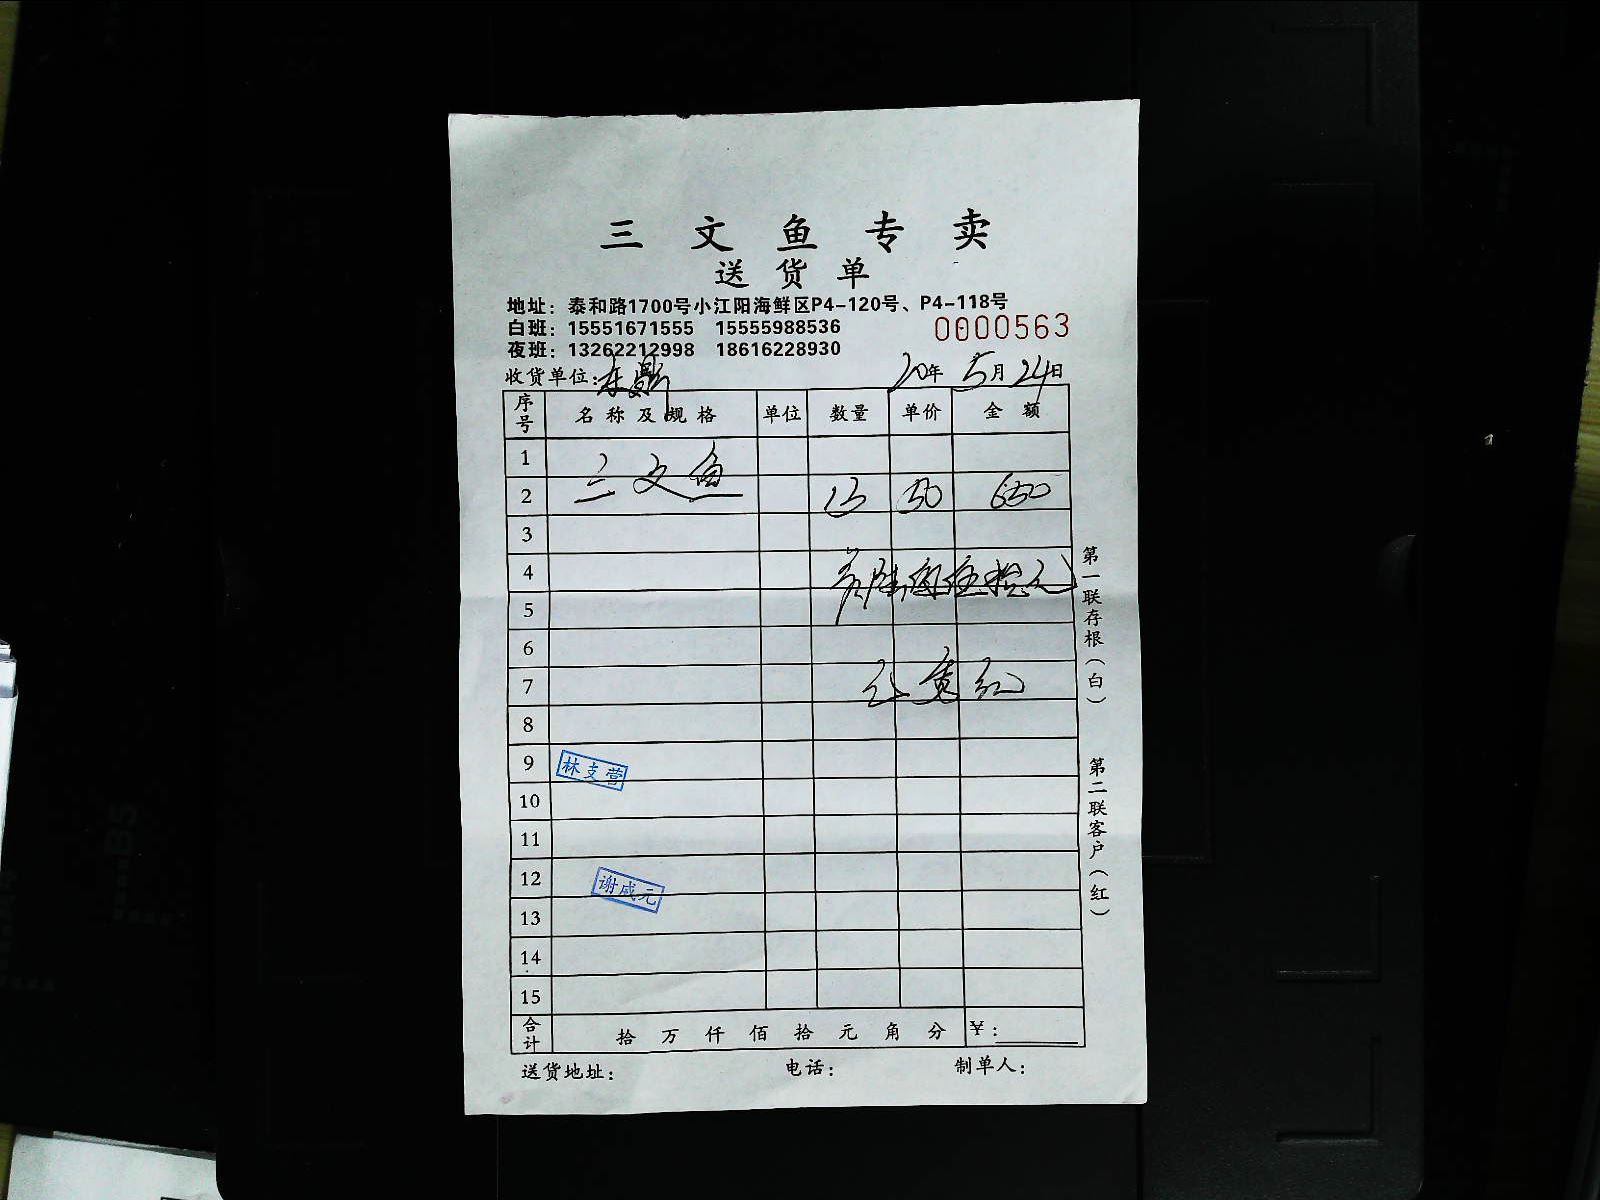 三文鱼专卖
送货单
地址：泰和路1700号小江阳海鲜区P4-120号、P4-118号
白班：15551671555 15555988536
0000563
夜班：13262212998 18616228930
收货单位： 20年 5月 24日
序号 名称及规格 单位 数量 单价 金额
1 三文鱼
2 13 50 650
3
4 陆佰伍拾元
5
6
7
8
9 林支营
10
11
12 谢咸元
13
14
15
合计 拾 万 仟 佰 拾 元 角 分 ￥：
送货地址： 电话： 制单人：
第一联存根（白）
第二联客户（红）